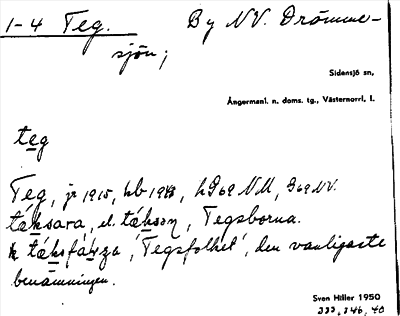 1-4 Teg. By NV. Drömme-
sjön;
Sidensjö sn,
Ångermanl. n. doms. tg., Västernorrl. l.
teg
Teg, jr 1915, kb 1943, hG69 NM, G69 NV.
táksara, el. táksọn, Tegsborna.
táksfá̱ɽza, 'Tegsfolket', den vanligaste
benämningen.
Sven Hiller 1950